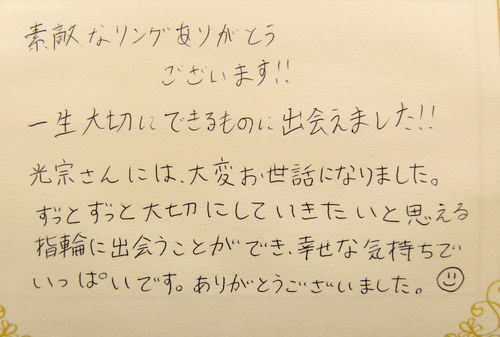 素敵なリングありがとう
ございます!!
一生大切にできるものに出会えました!!
光宗さんには、大変お世話になりました。
ずっとずっと大切にしていきたいと思える
指輪に出会うことができ、幸せな気持ちで
いっぱいです。ありがとうございました。